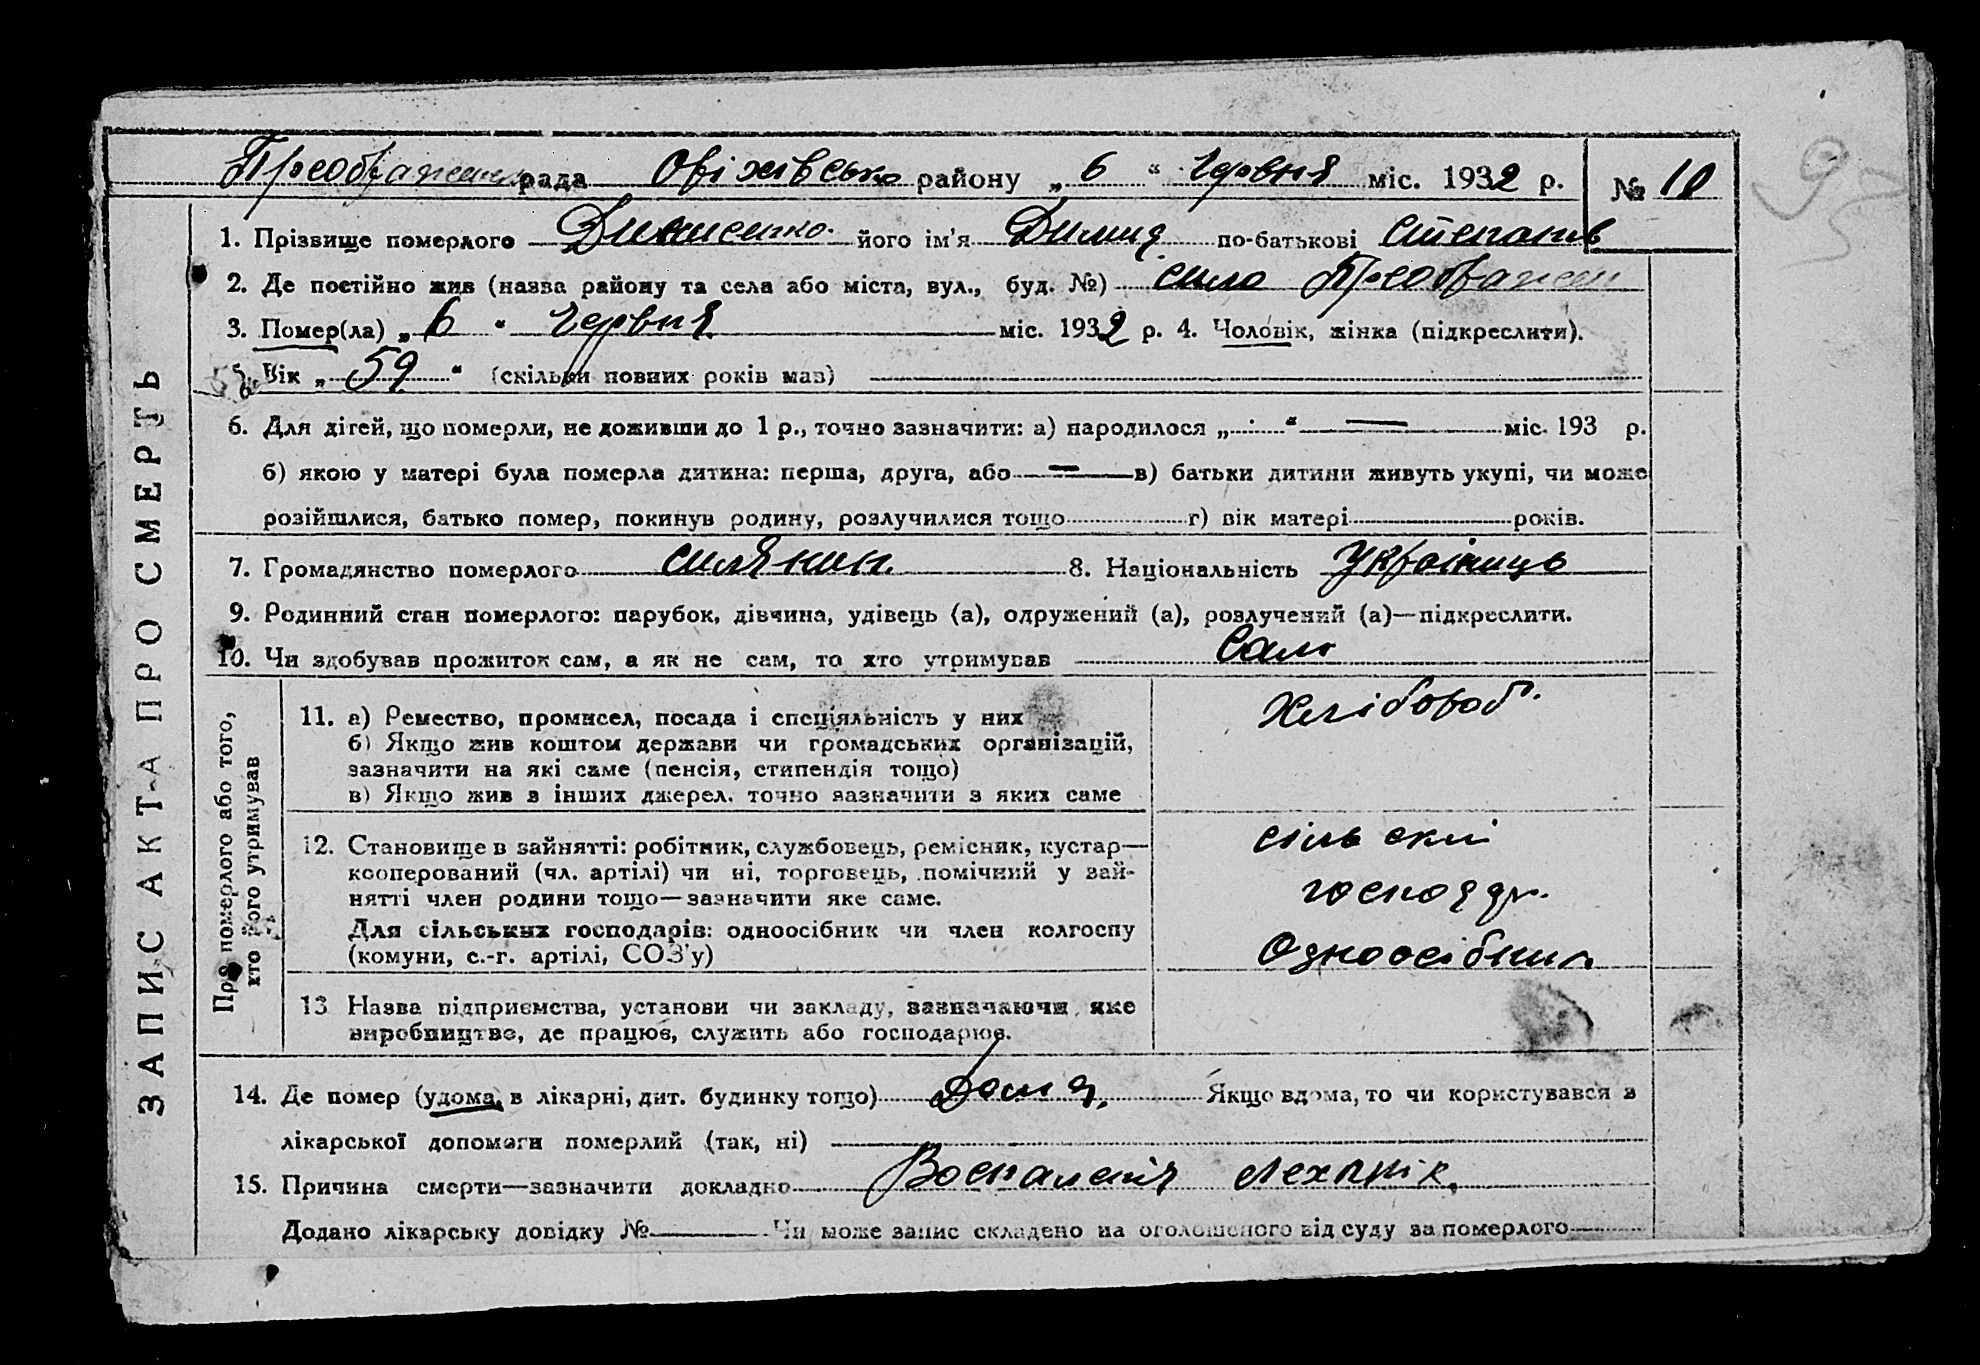 Преображенська рада Оріхівсько району „ 6 “ Червня міс. 1932 р. № 10
1. Прізвище померлого його ім'я Димид по-батькові Степанів
2. Де постійно жив (назва району та села або міста, вул., буд. №) село Преображен
3. Помер(ла) „ 6 “ Червня міс. 1932 р. 4. Чоловік, жінка (підкреслити).
5. Вік „ 59 “ (скільки повних років мав)
6. Для дітей, що померли, не доживши до 1 р., точно зазначити: а) народилося „ “ — міс. 193 р.
б) якою у матері була померла дитина: перша, друга, або — в) батьки дитини живуть укупі, чи може
розійшлися, батько помер, покинув родину, розлучилися тощо г) вік матері років.
7. Громадянство померлого селянин. 8. Національність Українець
9. Родинний стан померлого: парубок, дівчина, удівець (а), одружений (а), розлучений (а)—підкреслити.
10. Чи здобував прожиток сам, а як не сам, то хто утримував Сам
11. а) Ремество, промисел, посада і спеціяльність у них Хлібороб.
б) Якщо жив коштом держави чи громадських організацій,
зазначити на які саме (пенсія, стипендія тощо)
в) Якщо жив з інших джерел, точно зазначити з яких саме
12. Становище в зайнятті: робітник, службовець, ремісник, кустар— сільскі
кооперований (чл. артілі) чи ні, торговець, помічний у зай- господр.
нятті член родини тощо—зазначити яке саме.
Для сільських господарів: одноосібник чи член колгоспу Одноосібник
(комуни, с.-г. артілі, СОЗ'у)
13 Назва підприємства, установи чи закладу, зазначаючи яке
виробництво, де працює, служить або господарює.
14. Де помер (удома, в лікарні, дит. будинку тощо) Дома, Якщо вдома, то чи користувався з
лікарської допомоги померлий (так, ні)
15. Причина смерти—зазначити докладно Воспаленія лехкиік,
Додано лікарську довідку № Чи може запис складено на оголошеного від суду за померлого
ЗАПИС АКТА ПРО СМЕРТЬ
Про померлого або того,
хто його утримував